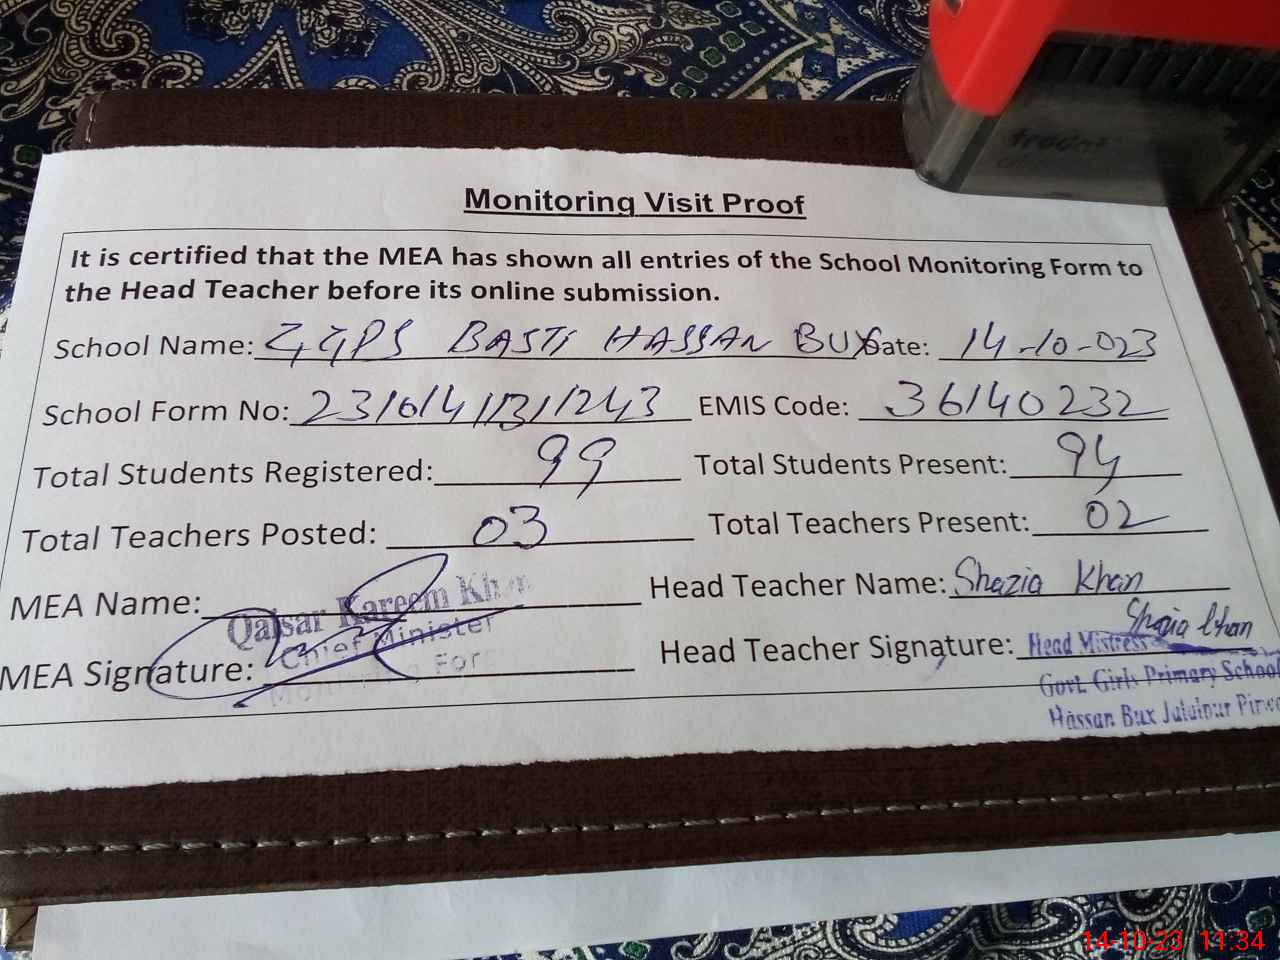 Monitoring Visit Proof
It is certified that the MEA has shown all entries of the School Monitoring Form to
the Head Teacher before its online submission.
School Name: GGPS BASTI HASSAN BUX Date: 14-10-023
School Form No: 23/6/4/13/1243 EMIS Code: 36140232
Total Students Registered: 99 Total Students Present: 94
Total Teachers Posted: 03 Total Teachers Present: 02
MEA Name: Qaisar Kareem Khan Head Teacher Name: Shazia Khan
Chief Minister
MEA Signature: Head Teacher Signature: Shazia Khan
Head Mistress
Govt. Girls Primary School
Hassan Bux Jalalpur
14-10-23 11:34